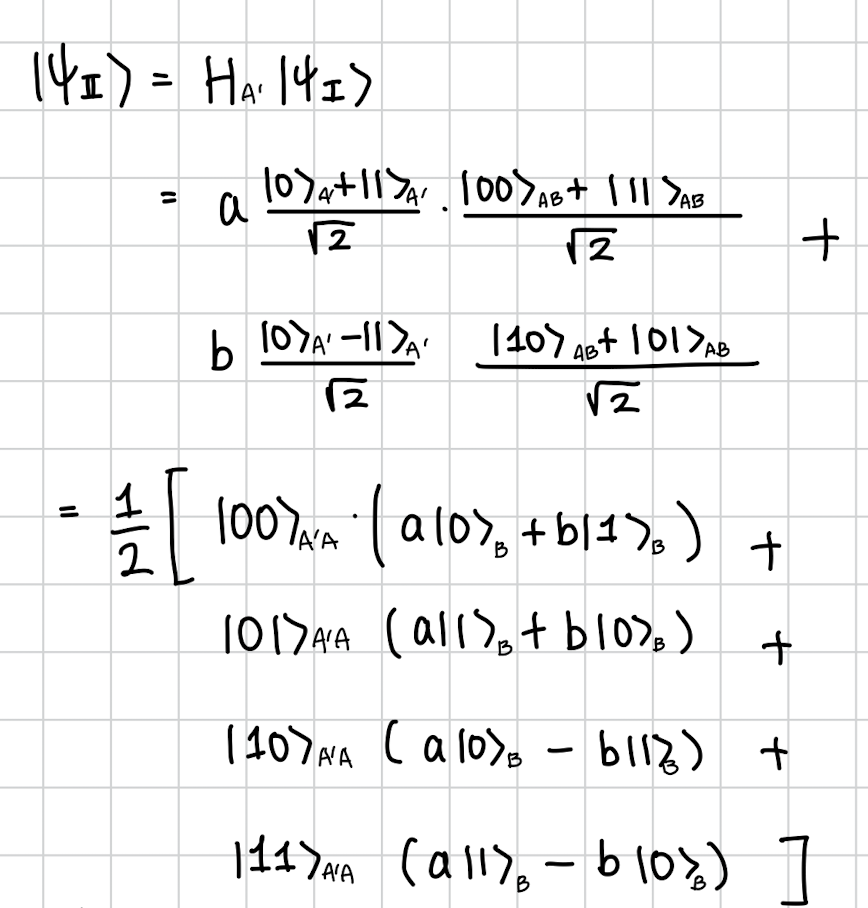 |ψ_II⟩ = H_A' |ψ_I⟩
= a (|0⟩_A' + |1⟩_A')/√2 · (|00⟩_AB + |11⟩_AB)/√2 +
b (|0⟩_A' − |1⟩_A')/√2 (|10⟩_AB + |01⟩_AB)/√2
= 1/2 [ |00⟩_A'A · (a|0⟩_B + b|1⟩_B) +
|01⟩_A'A (a|1⟩_B + b|0⟩_B) +
|10⟩_A'A (a|0⟩_B − b|1⟩_B) +
|11⟩_A'A (a|1⟩_B − b|0⟩_B) ]